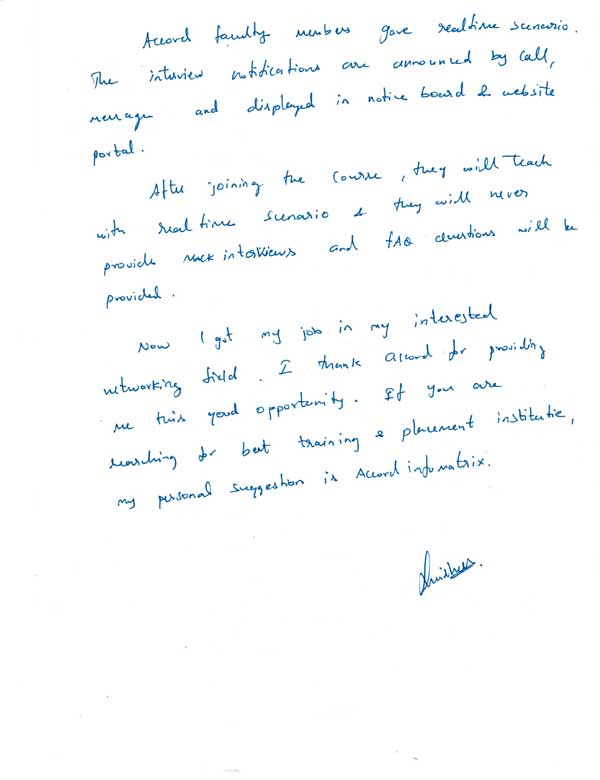 Accord faculty members gave realtime scenario.
The interview notifications are announced by call,
message and displayed in notice board & website
portal.
After joining the course, they will teach
with real time scenario & they will never
provide mock interviews and FAQ questions will be
provided.
Now I got my job in my interested
networking field. I thank Accord for providing
me this good opportunity. If you are
searching for best training & placement institutie,
my personal suggestion is Accord infomatrix.